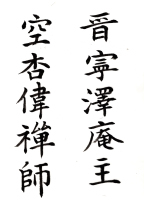 晋寧澤庵主
空杏偉禅師